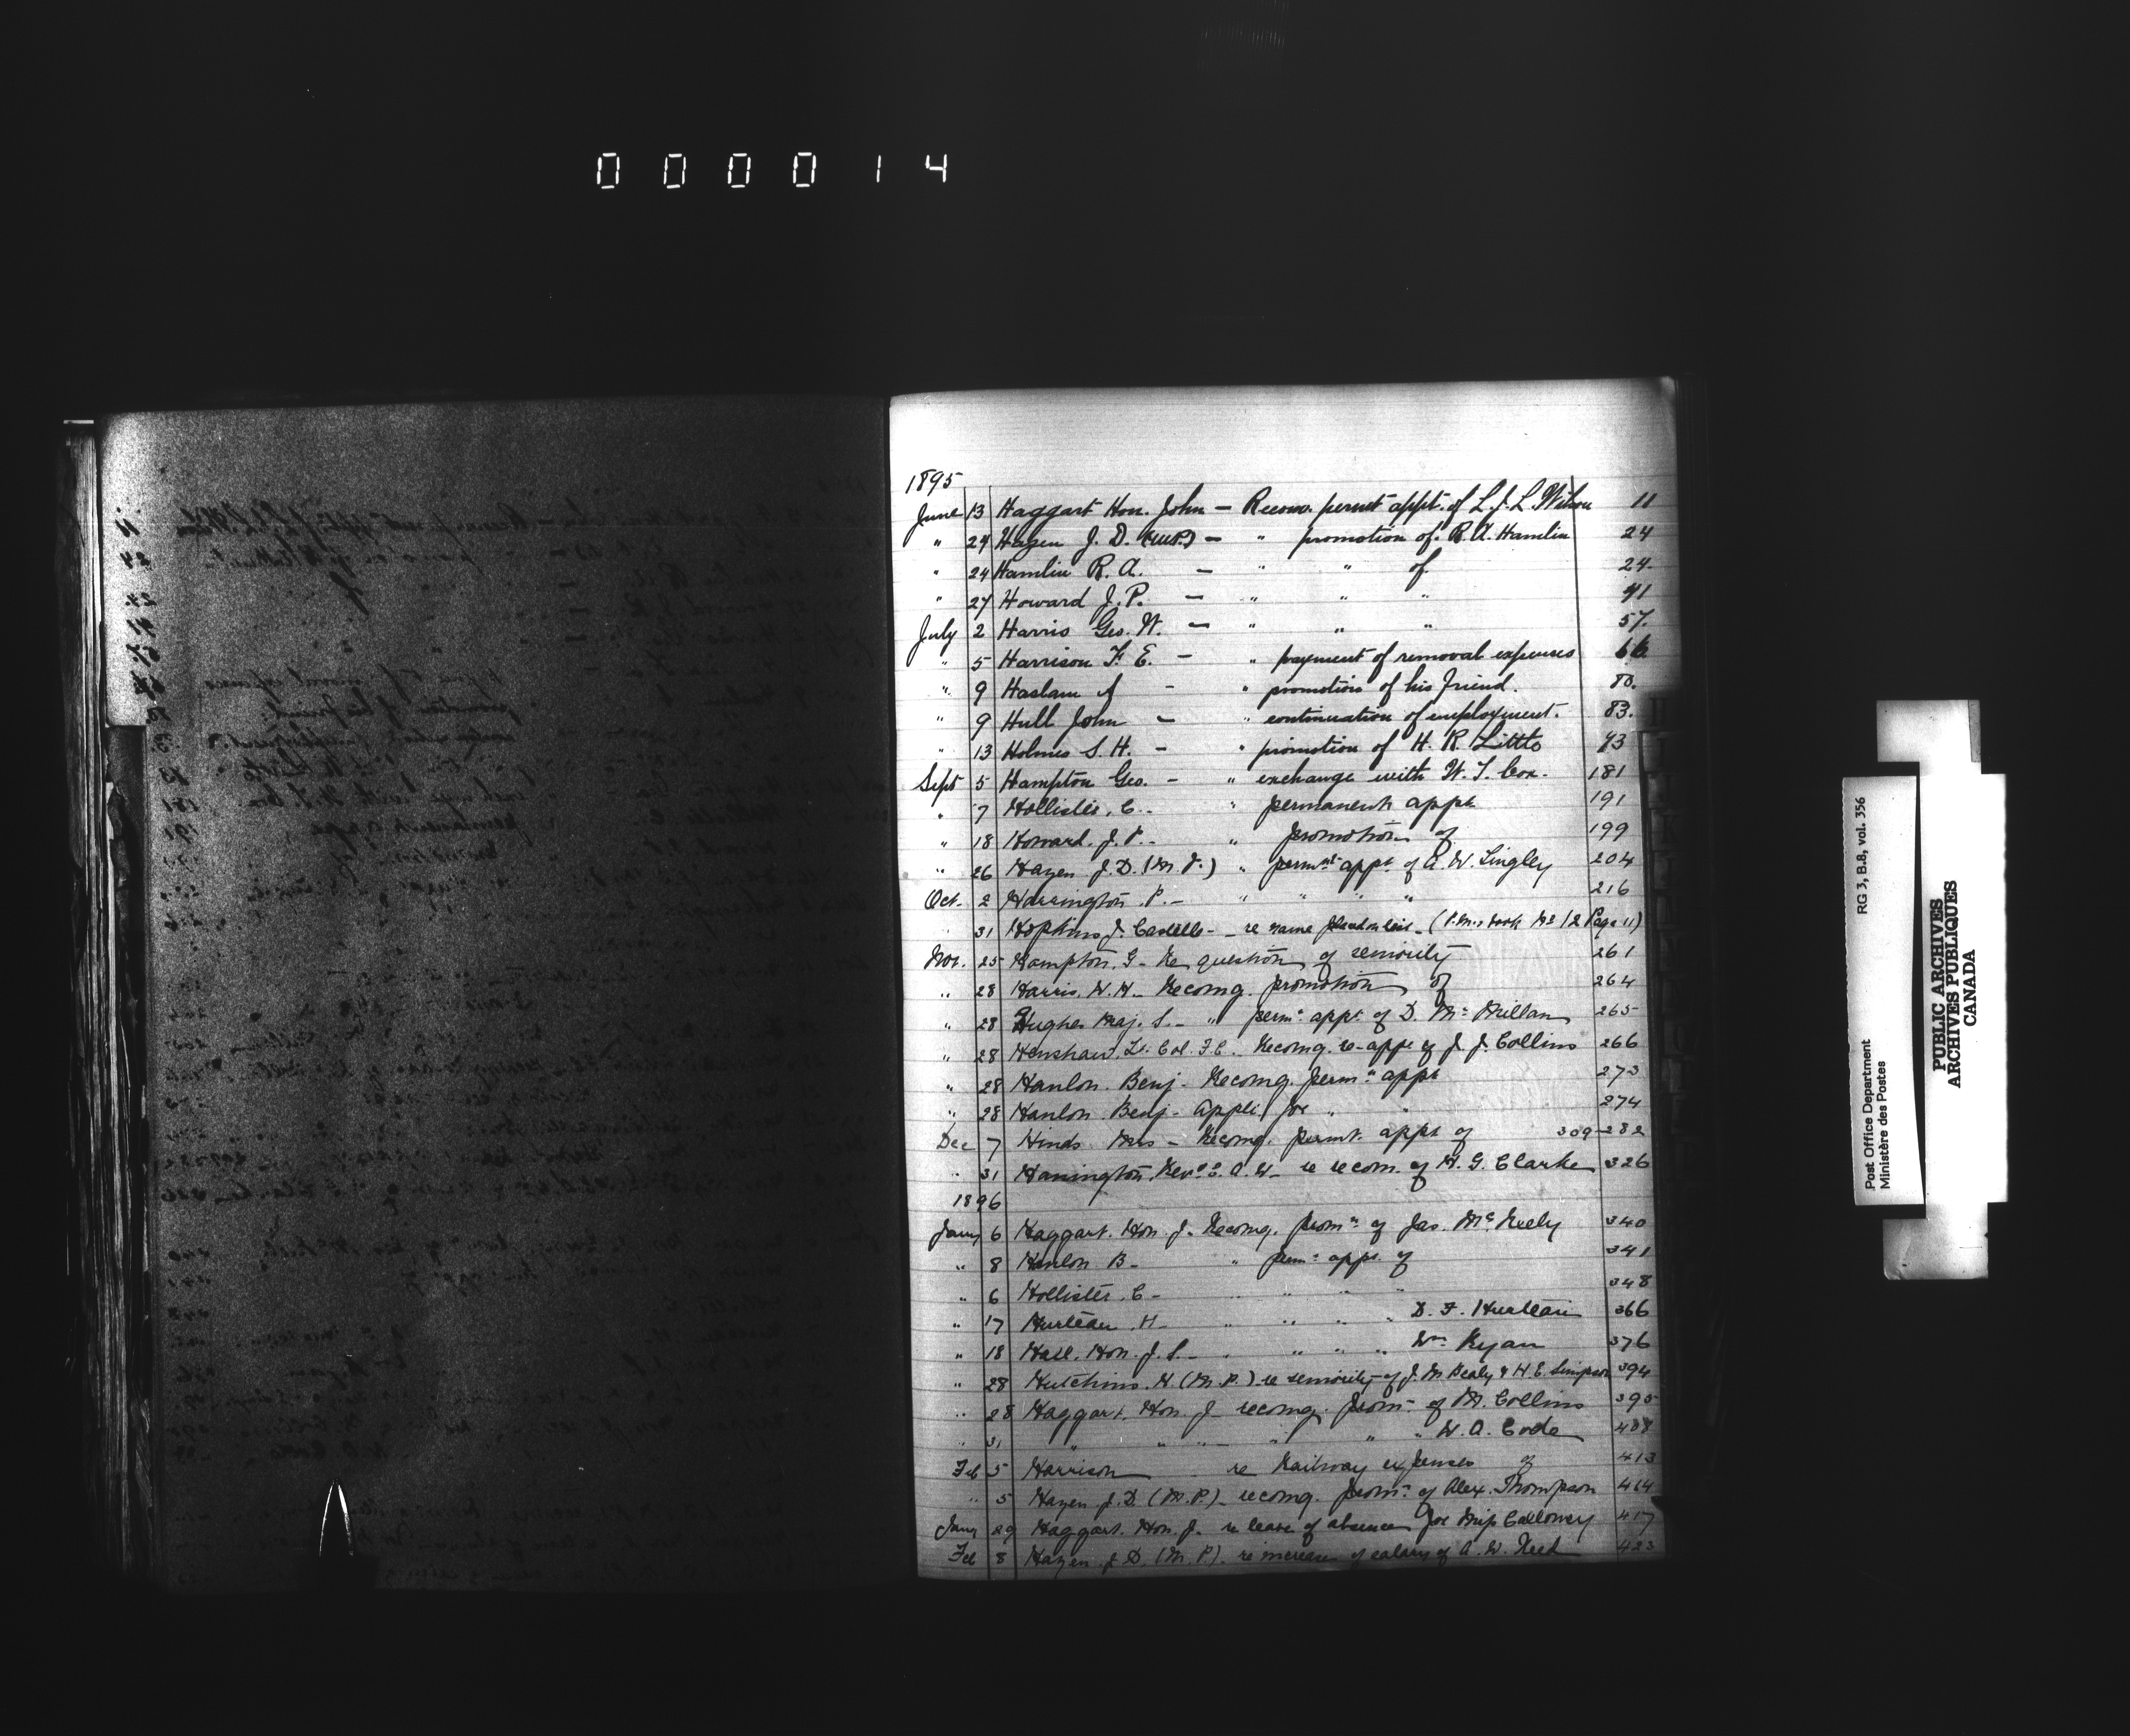 000014
1895
June 13 Haggart Hon. John — Recom. permt appt. of L. J. L. Wilson 11
" 24 Hazen J. D. (M.P.) — " promotion of R. A. Hamlin 24
" 24 Hamlin R. A. — " " of 24.
" 27 Howard J. P. — " " " 41
July 2 Harris Geo. W. — " " " 57.
" 5 Harrison F. E. — " payment of removal expenses 66.
" 9 Haslam A — " promotion of his friend. 80.
" 9 Hull John — " continuation of employment. 83.
" 13 Holmes S. H. — " promotion of H. R. Little 93
Sept 5 Hampton Geo. — " exchange with W. T. Cox. 181
" 7 Hollister, C. — " permanent appt 191
" 18 Howard. J. P. — " promotion of 199
" 26 Hazen J. D. (M.P.) " permnt appt. of A. W. Lingley 204
Oct. 2 Harrington. P. — " " " " 216
31 Hopkins J. Castelle — re name (P.M.s book No 12 Page 11)
Nov. 25 Hampton. G — Re question of seniority 261
" 28 Harris, W. H. — Recomg. promotion of 264
" 28 Hughes Maj. S. — " permt appt. of D. McMillan 265
" 28 Henshaw. Lt. Col. F. C. Recomg. re-appt of J. J. Collins 266
" 28 Hanlon. Benj. Recomg. permnt appt 273
" 28 Hanlon. Benj — Appli. for " " 274
Dec 7 Hinds Mrs — Recomg. permt. appt of 309–282
" 31 Hanington. Revd E. A. W. — re recom. of H. G. Clarke 326
1896
Jany 6 Haggart. Hon. J. Recomg. promn of Jas. McNeely 340
" 8 Hanlon B — " permt appt. of 341
" 6 Hollister. C — " " " " 348
" 17 Hurteau. H — " " " " D. F. Hurteau 366
" 18 Hall. Hon. J. S. — " " " " Wm Ryan 376
" 28 Hutchins. H. (M.P.) re seniority of J. M. Bealy & H. E. Simpson 394
" 28 Haggart. Hon. J — recomg. promn of M. Collins 395
" 31 " " " — " " " W. A. Code 408
Feb 5 Harrison re Railway expenses of 413
" 5 Hazen J. D. (M.P.) — recomg. promn of Alex. Thompson 414
Jany 29 Haggart. Hon. J. re leave of absence for Miss Calloway 417
Feb 8 Hazen J. D. (M.P.) re increase of salary of A. W. Reed 423
Post Office Department RG 3, B.8, vol. 356
Ministère des Postes
PUBLIC ARCHIVES
ARCHIVES PUBLIQUES
CANADA